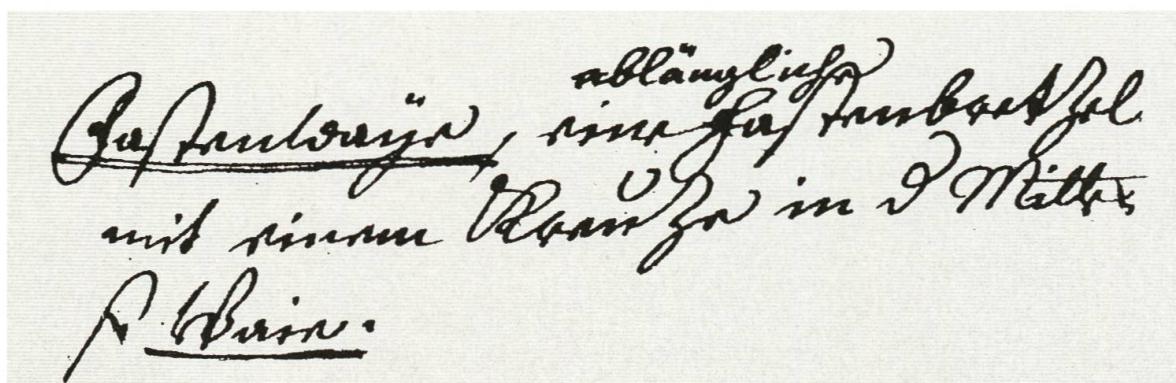 Fastenwaÿe, eine ablängliche Fastenbretzel
mit einem Kreuze in d Mitte.
s. Waie.